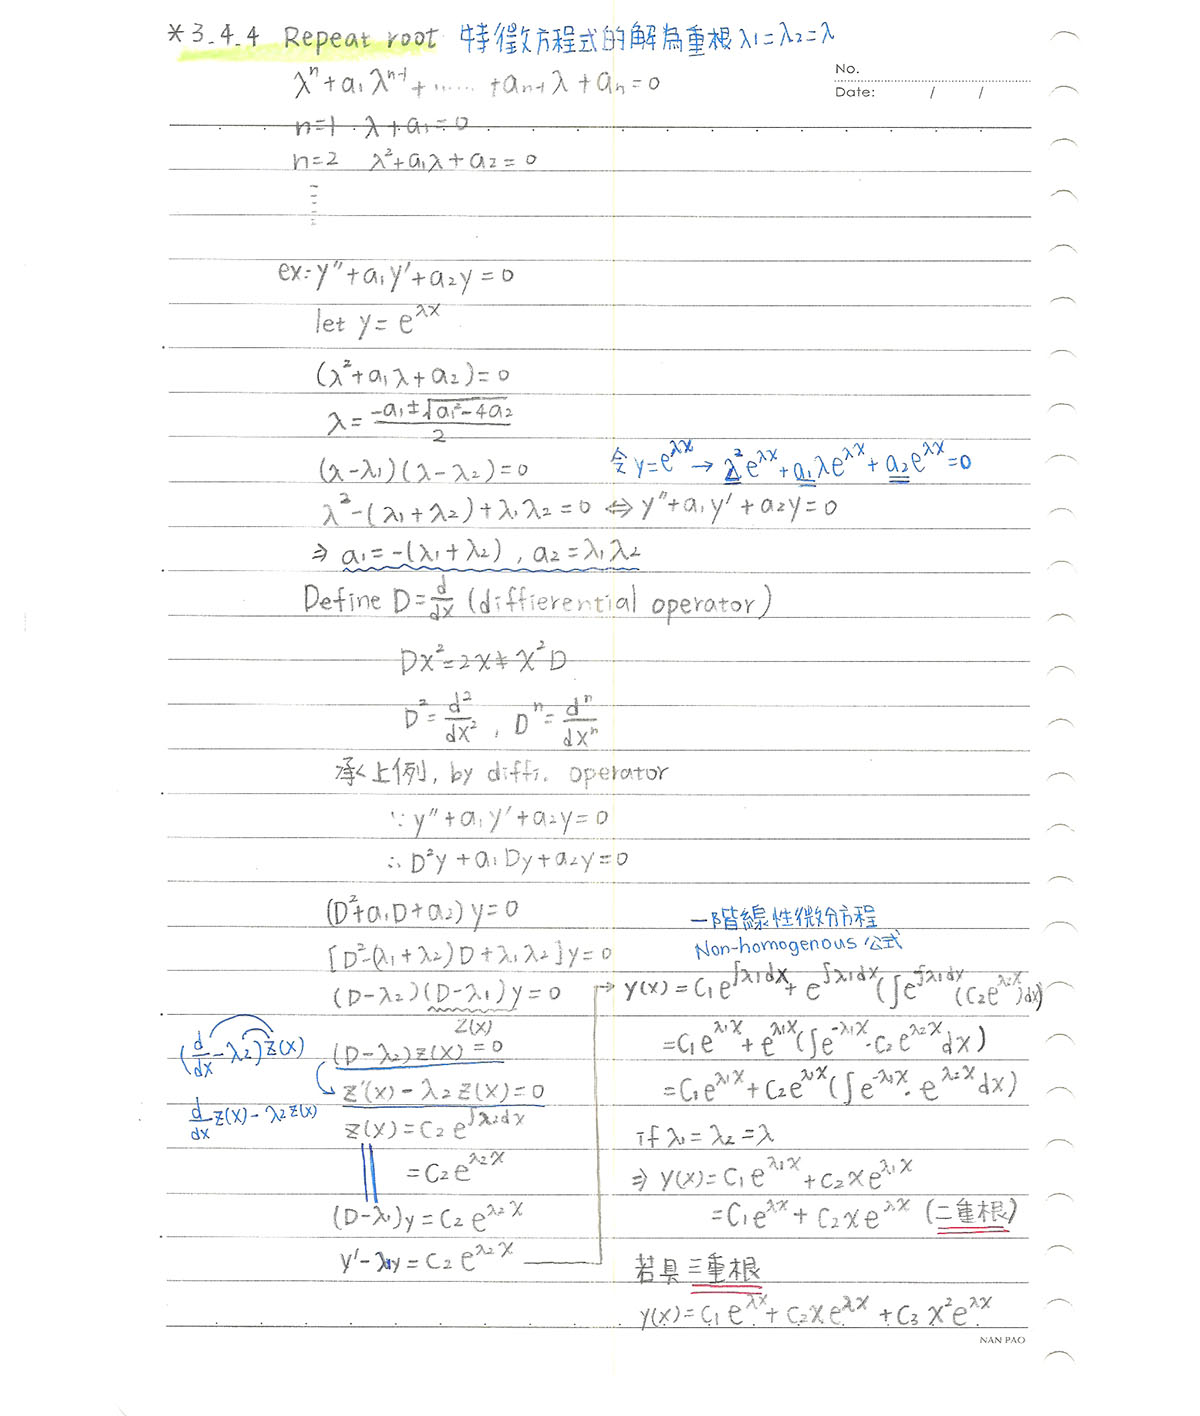 *3.4.4 Repeat root 特徵方程式的解為重根 λ1=λ2=λ
No.
Date: / /
λⁿ+a₁λⁿ⁻¹+......+aₙ₋₁λ+aₙ=0
n=1 λ+a₁=0
n=2 λ²+a₁λ+a₂=0
ex: y"+a₁y'+a₂y=0
let y=e^{λx}
(λ²+a₁λ+a₂)=0
λ=\frac{-a₁±√(a₁²-4a₂)}{2}
(λ-λ₁)(λ-λ₂)=0
令 y=e^{λx} → λ²e^{λx}+a₁λe^{λx}+a₂e^{λx}=0
λ²-(λ₁+λ₂)+λ₁λ₂=0 ⇔ y"+a₁y'+a₂y=0
⇒ a₁=-(λ₁+λ₂), a₂=λ₁λ₂
Define D=\frac{d}{dx} (diffierential operator)
Dx²=2x≠x²D
D²=\frac{d²}{dx²}, Dⁿ=\frac{dⁿ}{dxⁿ}
承上例, by diffi. operator
∵ y"+a₁y'+a₂y=0
∴ D²y+a₁Dy+a₂y=0
(D²+a₁D+a₂)y=0
[D²-(λ₁+λ₂)D+λ₁λ₂]y=0
(D-λ₂)(D-λ₁)y=0
z(x)
(\frac{d}{dx}-λ₂)z(x)
(D-λ₂)z(x)=0
z'(x)-λ₂z(x)=0
\frac{d}{dx}z(x)-λ₂z(x)
z(x)=C₂e^{∫λ₂dx}
=C₂e^{λ₂x}
(D-λ₁)y=C₂e^{λ₂x}
y'-λ₁y=C₂e^{λ₂x}
一階線性微分方程
Non-homogenous 公式
→ y(x)=C₁e^{∫λ₁dx}+e^{∫λ₁dx}(∫e^{-∫λ₁dx}(C₂e^{λ₂x})dx)
=C₁e^{λ₁x}+e^{λ₁x}(∫e^{-λ₁x}·C₂e^{λ₂x}dx)
=C₁e^{λ₁x}+C₂e^{λ₁x}(∫e^{-λ₁x}·e^{λ₂x}dx)
if λ₁=λ₂=λ
⇒ y(x)=C₁e^{λ₁x}+C₂xe^{λ₁x}
=C₁e^{λx}+C₂xe^{λx} (二重根)
若具三重根
y(x)=C₁e^{λx}+C₂xe^{λx}+C₃x²e^{λx}
NAN PAO